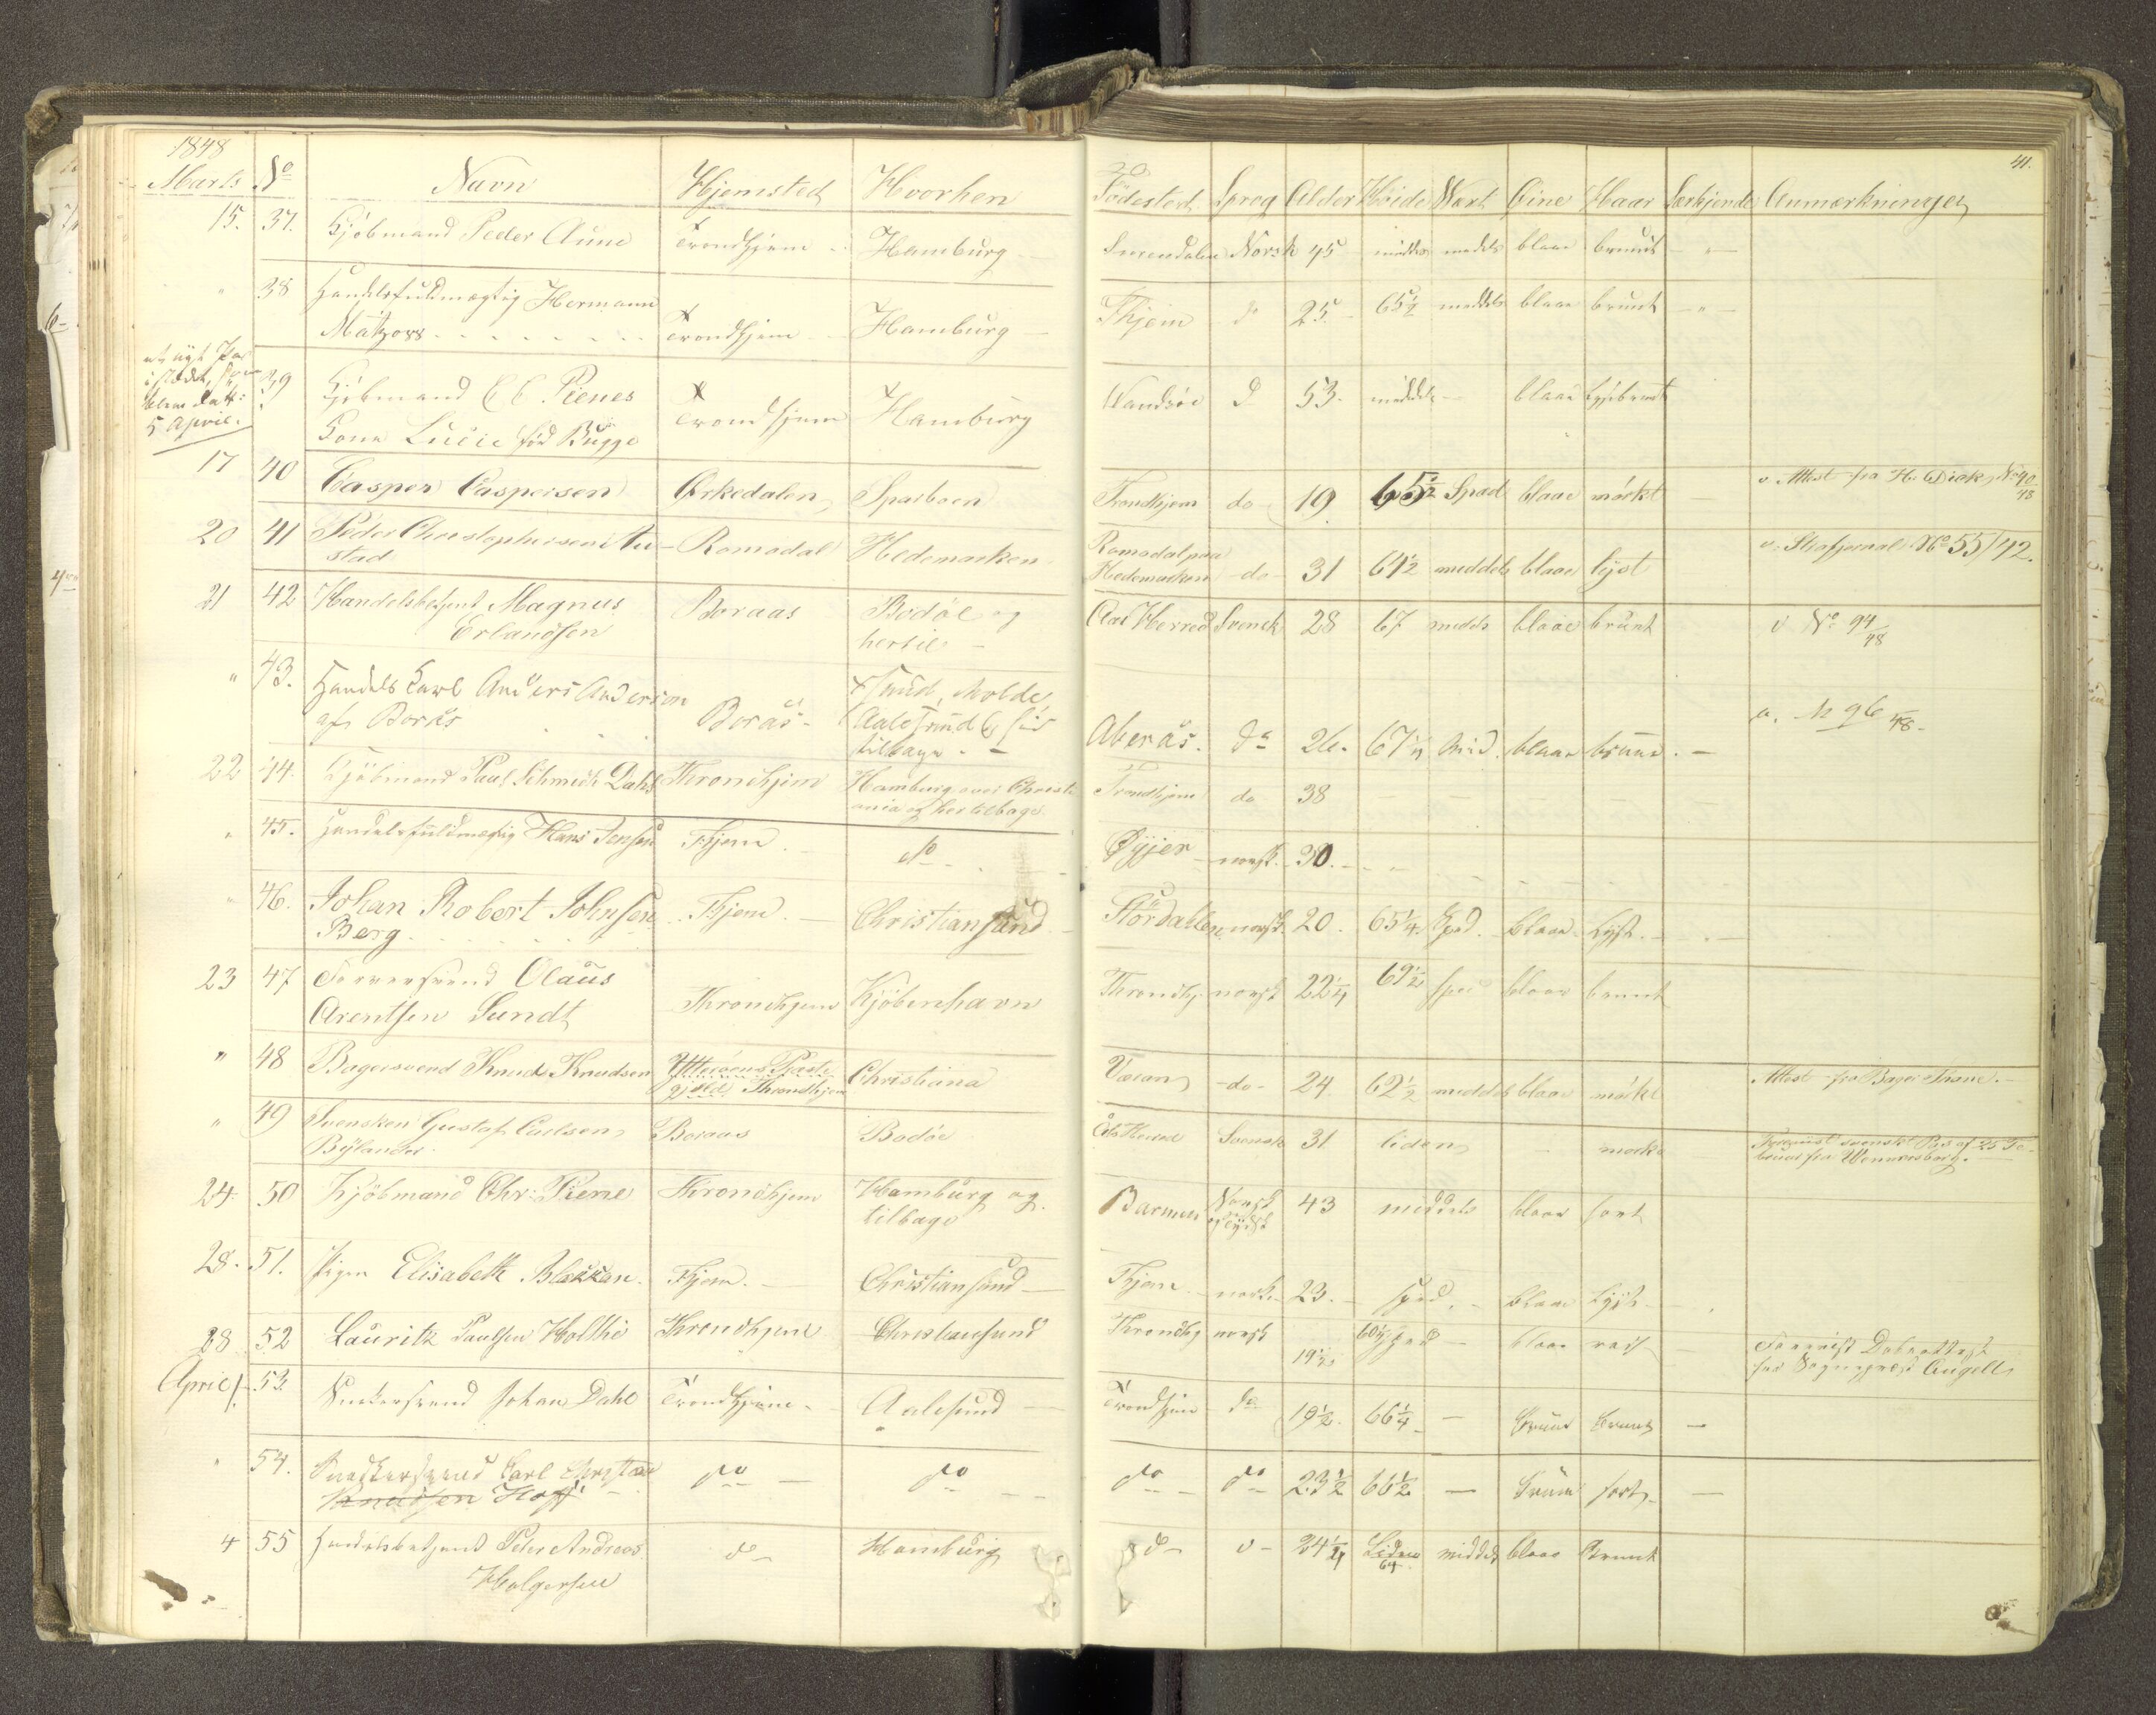 1848
Marts No Navn Hjemsted Hvorhen Födested Sprog Alder Höide Væxt Öine Haar Særkjende Anmærkninger
41.
15. 37. Kjöbmand Peder Aune Trondhjem Hamburg Norsk 45 middels meddels blaae bruunt
" 38 Handelsfuldmægtig Hermann
Mätzow Trondhjem Hamburg Thjem do 25 65½ meddels blaae bruunt
5 April.
39 Kjöbmand Pienes
Kone Lucie föd Bugge Trondhjem Hamburg do 53. middels blaae Lysebruunt
17 40 Casper Caspersen Orkedalen Sparboen Trondhjem do 19 65½ Spæd blaae mörkt v. Attest fra No 40/48
20 41 Peder Christophersen Au-
stad Romsdal Hedemarken Romsdal paa
Hedemarken do 31 64½ meddels blaae lyst v. No 55/42.
21 42 Handelsbetjent Magnus
Erlandsen Boraas Bodöe og
hertil Aas Herred Svensk 28 67 meddels blaae brunt v No 94/48
" 43. Handels Karl Anders Anderson
af Borås Borås Xsund, Molde,
Aalesund & her
tilbage do 26. 67¼ Mid. blaae bruune a. N 96/48
22 44. Kjöbmand Paul Schmidt Dahl Throndhjem Hamburg over Christi
ania og her tilbage Trondhjem do 38
" 45. Handelsfuldmægtig Hans Jensen Thjem do Öyjer norsk 30.
" 46. Johan Robert Johnsen
Berg Thjem. Christiansund Stördahlen norsk 20. 65¼ Spæd. blaae Lyst.
23 47 Farversvend Olaus
Arentsen Sundt Throndhjem Kjöbenhavn Throndhj. norsk 22¼ 69½ spæd blaae brunt
" 48 Bagersvend Knud Knudsen Ytteröens Præste
gjeld Throndhjem Christiana Væran do 24 62½ meddels blaae mörkt Attest fra Bager
" 49 Svensken Gustaf Carlsen
Bylander Boraas Bodöe Ås Herred Svensk 31 liden mörkt Foreviist svenskt Pas af 25 Fe-
bruar fra Wennersborg.
24 50 Kjöbmand Chr: Piene Throndhjem Hamburg og
tilbage Barmen Norsk
og Tydsk 43 middels blaae sort
28. 51. Pigen Elisabeth Blakkan. Thjem. Christiansund Thjem norsk 23. spæd. blaae Lyst
28 52 Lauritz Paulsen Holthe Throndhjem Christiansund Throndhj norsk 19½ 60½ spæd blaae Foreviist Daabsattest
fra Sognepræst Angell
April 1. 53. Snedkersvend Johan Dahl Trondhjem Aalesund Trondhjem do 19½ 66¼ bruune bruunt
" 54. Snedkersvend Carl Christian
Knudsen Hoff do do do do 23½ 66½ bruune sort
4 55 Handelsbetjent Peter Andreas
Holgersen do Hamburg do do 24¼ Liden
64 middels blaae Bruunt